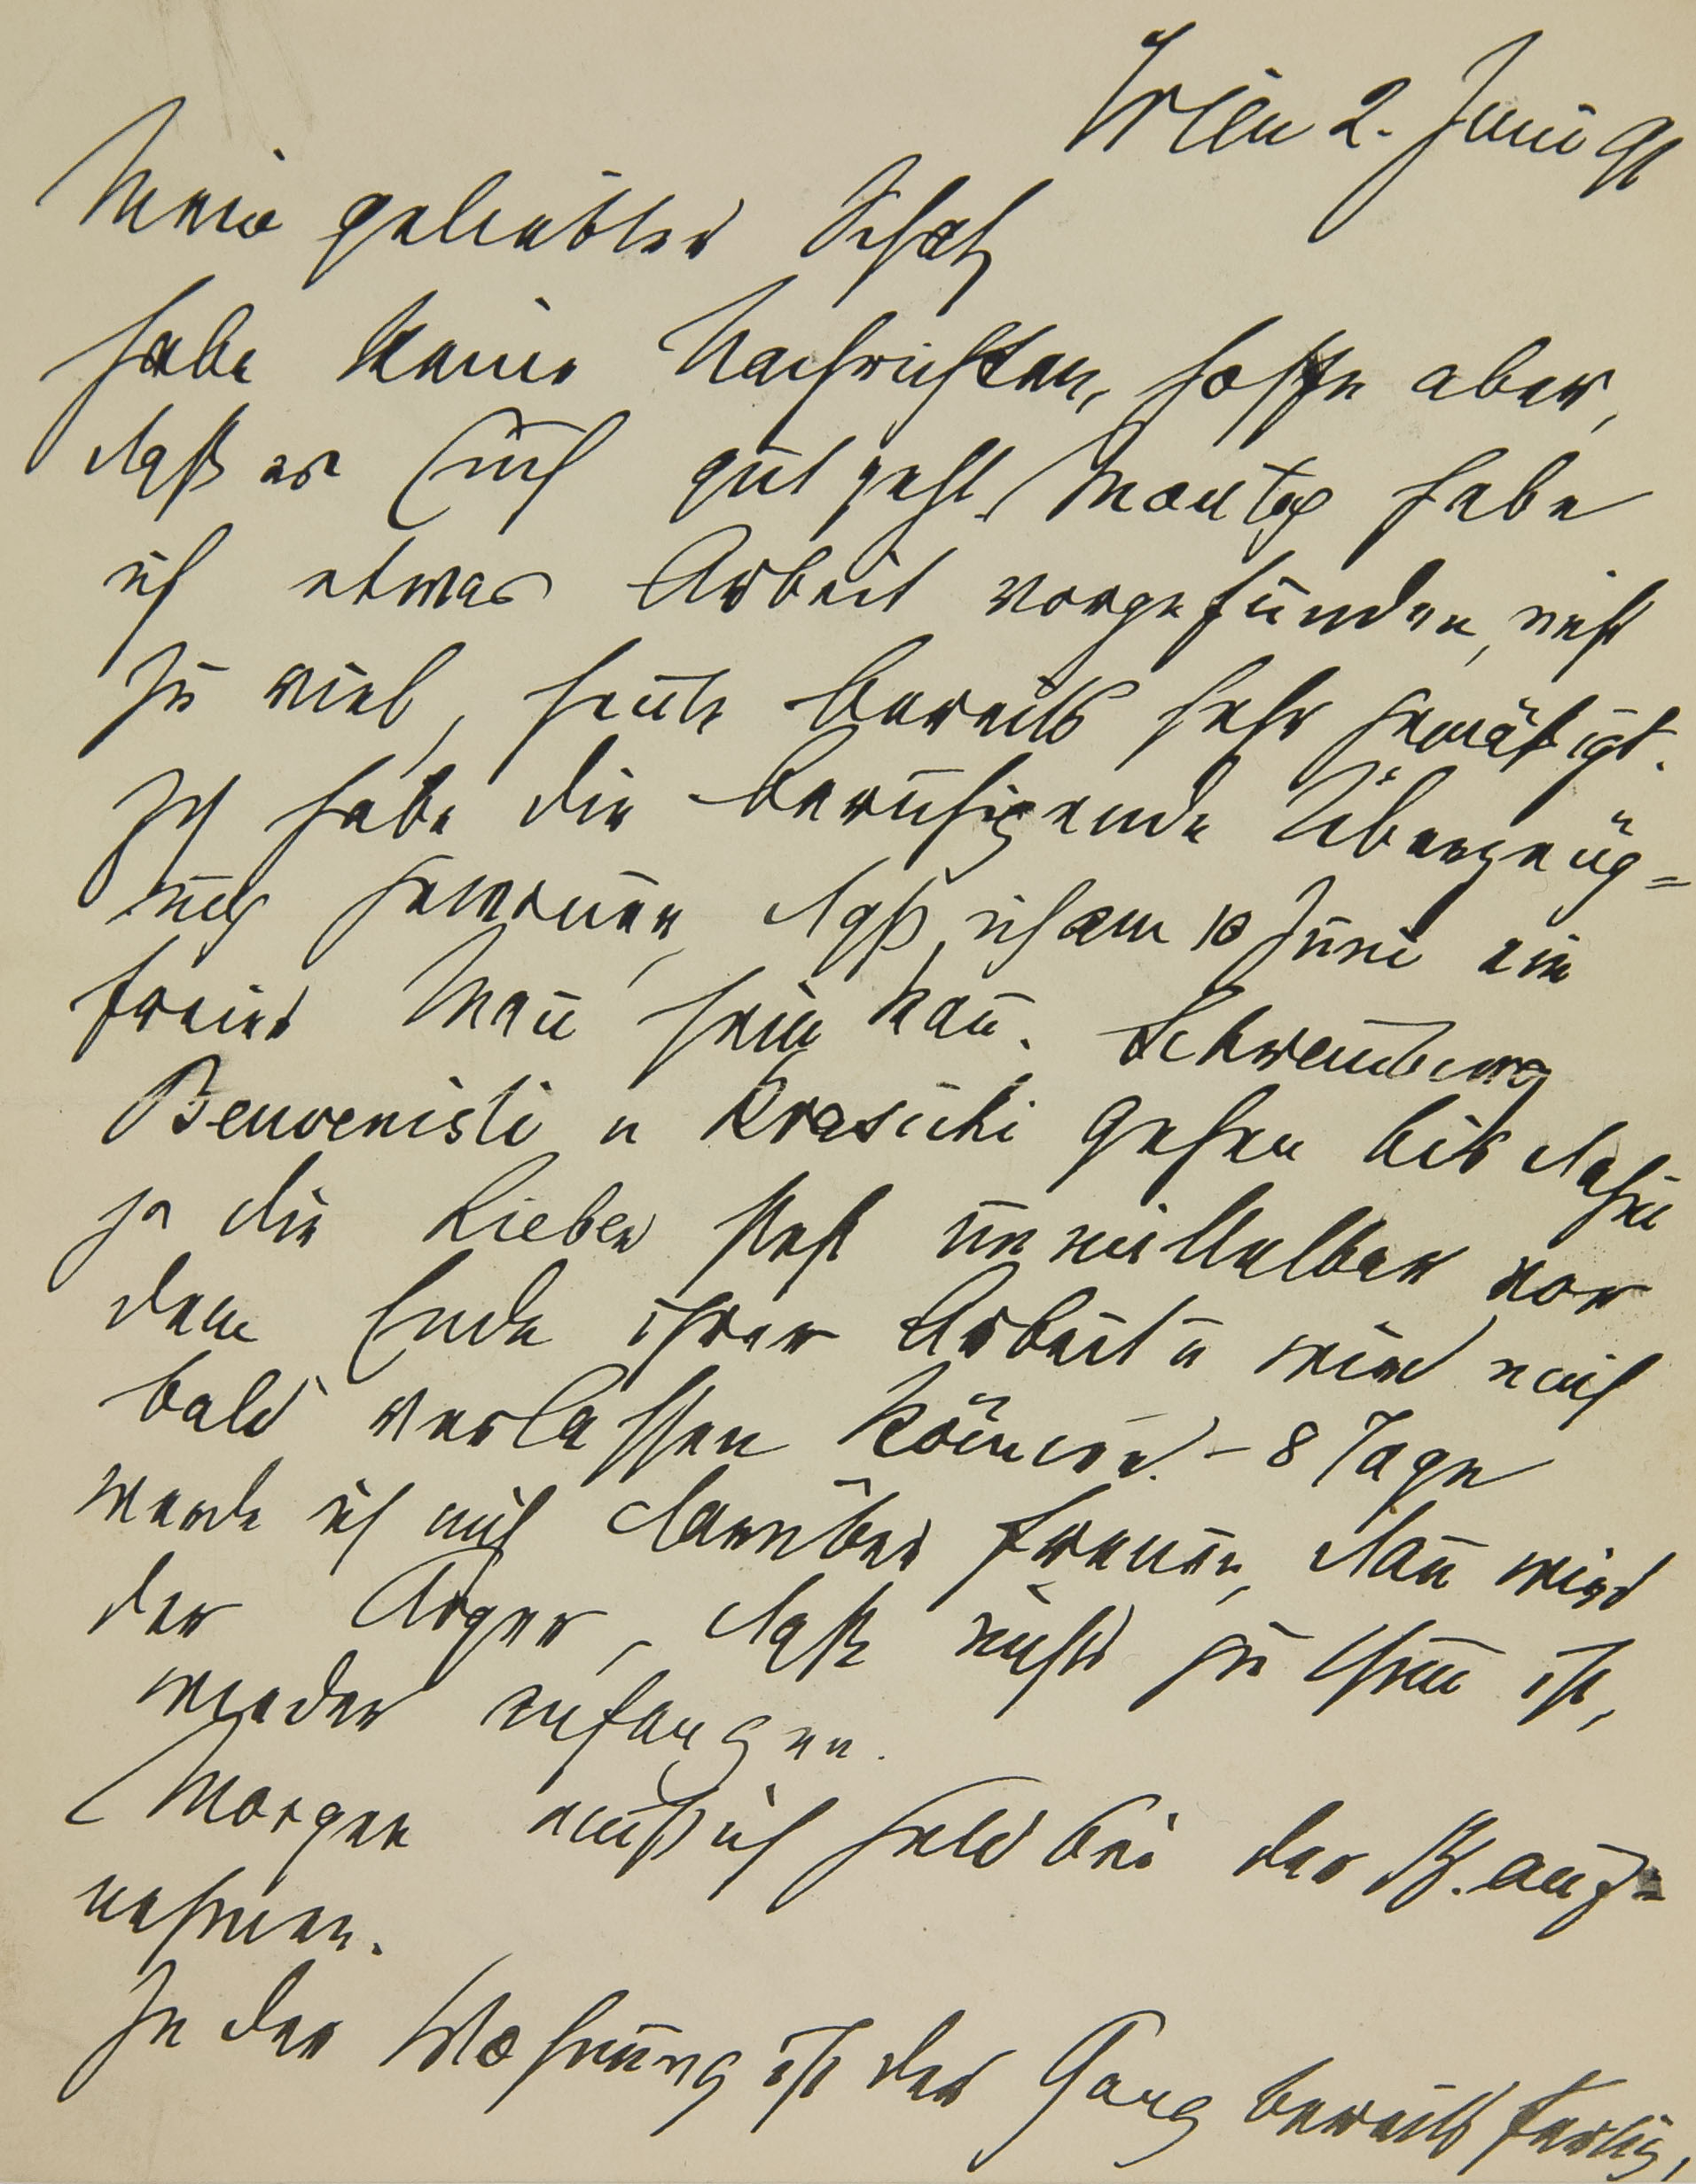 Wien 2. Juni 91
Mein geliebter Schatz
habe keine Nachrichten, hoffe aber,
daß es Euch gut geht. Montag habe
ich etwas Arbeit vorgefunden, nicht
zu viel, heute bereits sehr gemäßigt.
Ich habe die beruhigende Überzeug=
ung gewonen, daß ich am 10 Juni ein
freier Man̄ sein kan̄.
Benvenisti u Krasicki gehen bis dahin
ja die Lieben steht unmittelbar vor
dem Ende ihrer Arbeit u wird mich
bald verlassen könen. – 8 Tage
werde ich mich darüber freuen, dan̄ wird
der Ärger, daß nichts zu thun ist,
wieder anfangen.
Morgen muß ich Geld bei der B. auf=
nehmen.
In der Wohnung ist der Gang bereits fertig,